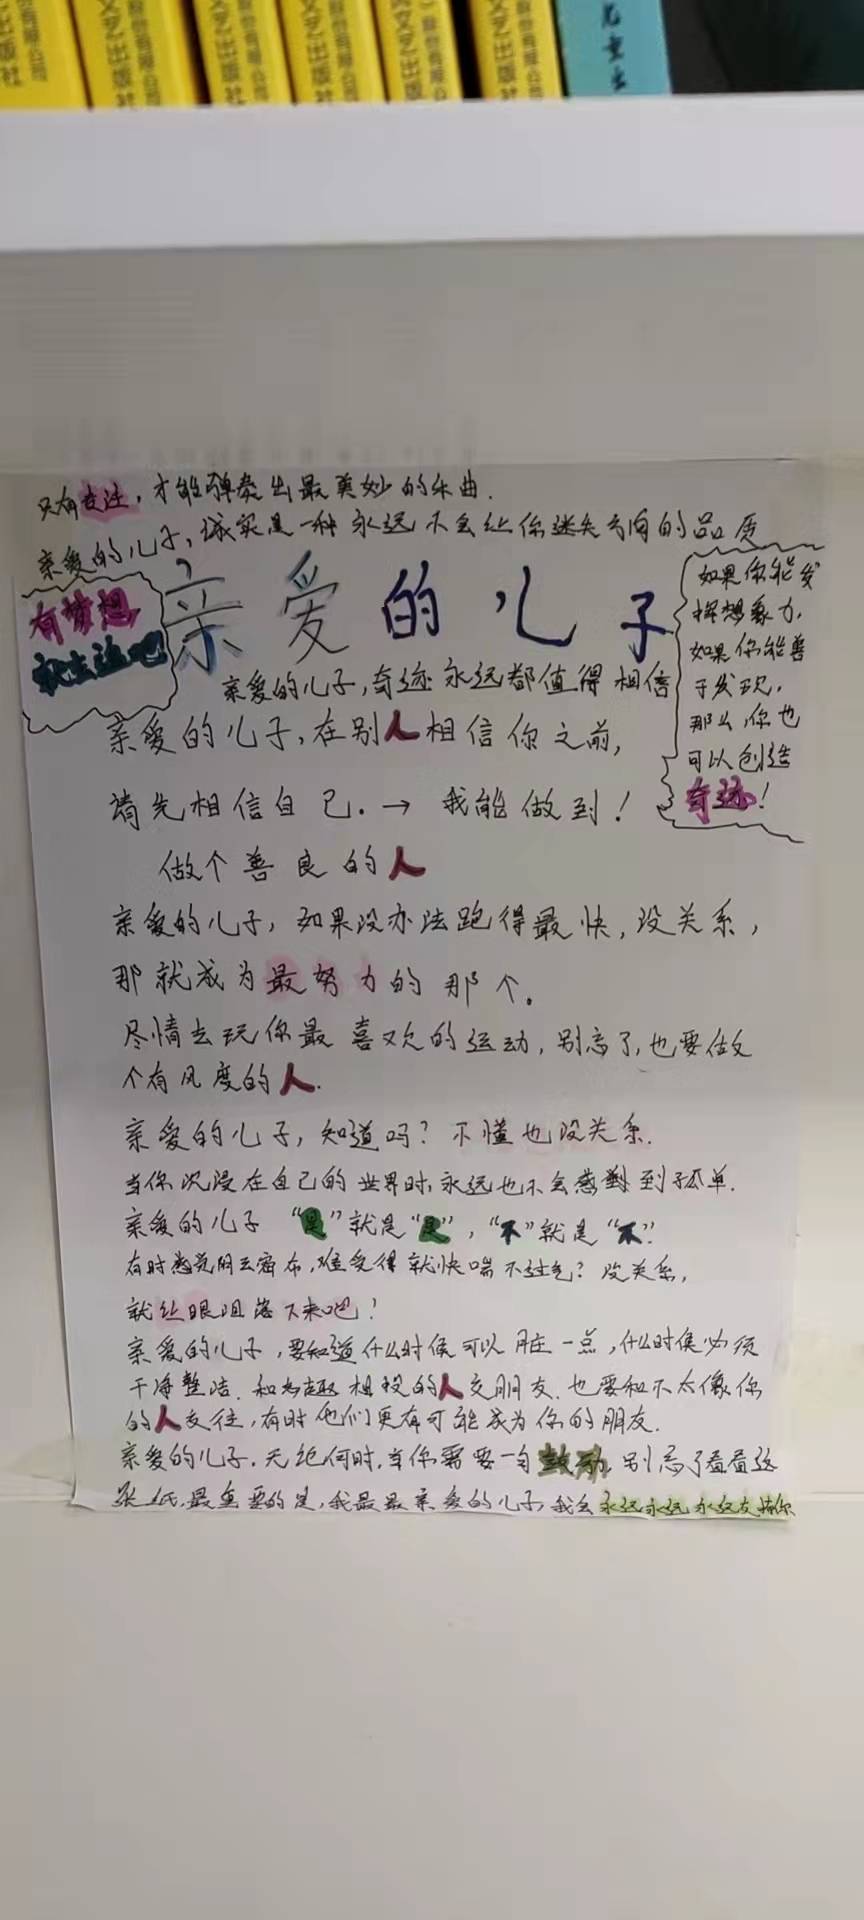 文艺出版社
份有限公司
文艺出版社
份有限公司
文艺出版社
份有限公司
文艺出版社
份有限公司
文艺出版社
份有限公司
儿童
只有专注，才能弹奏出最美妙的乐曲.
亲爱的儿子，诚实是一种永远不会让你迷失方向的品质
有梦想
就去追吧
亲爱的儿子
如果你能发
挥想象力，
如果你能善
于发现，
那么，你也
可以创造
奇迹！
亲爱的儿子，奇迹永远都值得相信
亲爱的儿子，在别人相信你之前，
请先相信自己.→我能做到！
做个善良的人
亲爱的儿子，如果没办法跑得最快，没关系，
那就成为最努力的那个。
尽情去玩你最喜欢的运动，别忘了，也要做
个有风度的人.
亲爱的儿子，知道吗？不懂也没关系.
当你沉浸在自己的世界时，永远也不会感到孤单.
亲爱的儿子 “是”就是“是”，“不”就是“不”.
有时感觉阴云密布，难受得就快喘不过气？没关系，
就让眼泪落下来吧！
亲爱的儿子，要知道什么时候可以脏一点，什么时候必须
干净整洁.和志趣相投的人交朋友.也要和不太像你
的人交往，有时他们更有可能成为你的朋友.
亲爱的儿子.无论何时，当你需要一句鼓励，别忘了看看这
张纸.最重要的是，我最最亲爱的儿子，我会永远永远永远支持你